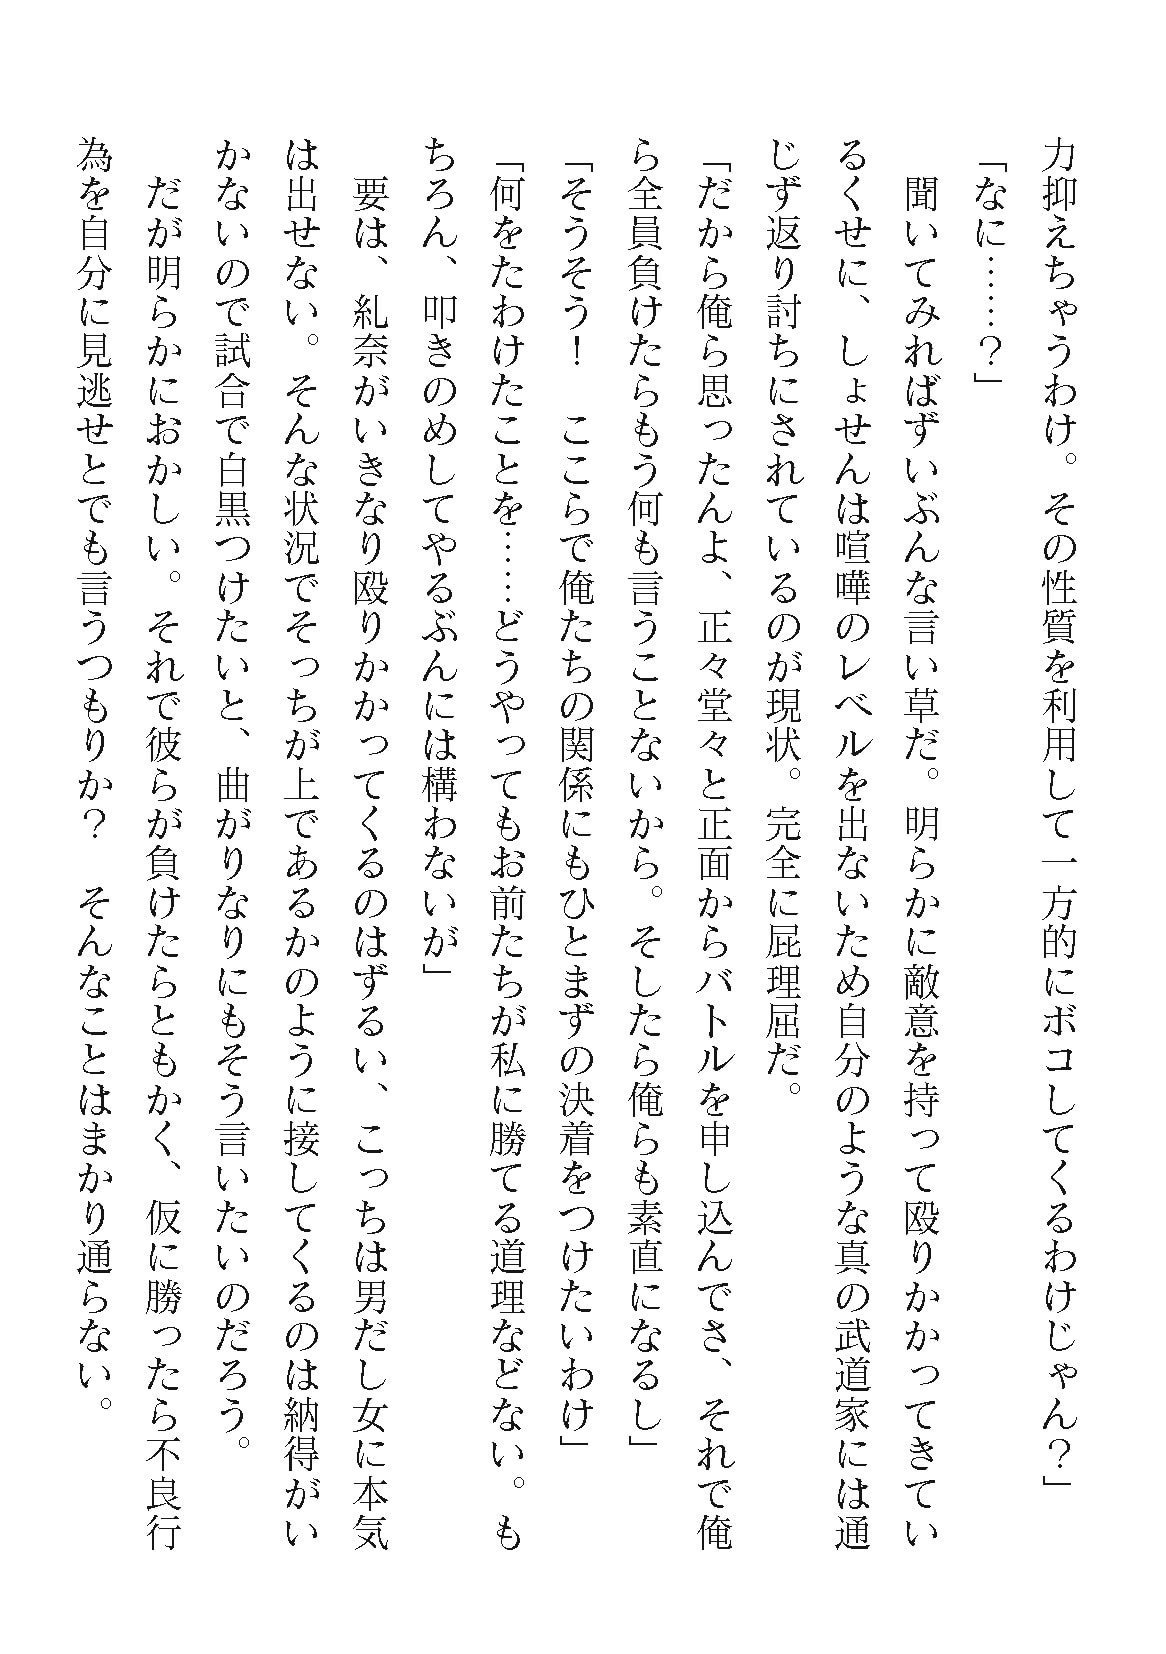 力抑えちゃうわけ。その性質を利用して一方的にボコしてくるわけじゃん？」
「なに……？」
　聞いてみればずいぶんな言い草だ。明らかに敵意を持って殴りかかってきてい
るくせに、しょせんは喧嘩のレベルを出ないため自分のような真の武道家には通
じず返り討ちにされているのが現状。完全に屁理屈だ。
「だから俺ら思ったんよ、正々堂々と正面からバトルを申し込んでさ、それで俺
ら全員負けたらもう何も言うことないから。そしたら俺らも素直になるし」
「そうそう！　ここらで俺たちの関係にもひとまずの決着をつけたいわけ」
「何をたわけたことを……どうやってもお前たちが私に勝てる道理などない。も
ちろん、叩きのめしてやるぶんには構わないが」
　要は、糺奈がいきなり殴りかかってくるのはずるい、こっちは男だし女に本気
は出せない。そんな状況でそっちが上であるかのように接してくるのは納得がい
かないので試合で白黒つけたいと、曲がりなりにもそう言いたいのだろう。
　だが明らかにおかしい。それで彼らが負けたらともかく、仮に勝ったら不良行
為を自分に見逃せとでも言うつもりか？　そんなことはまかり通らない。